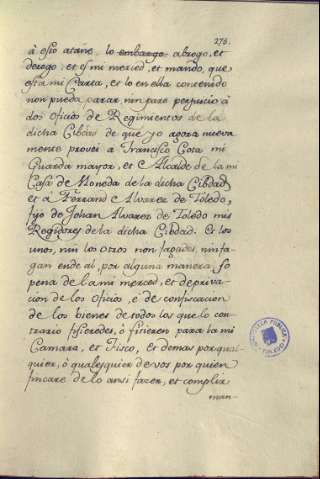 273.
à esto atañe lo embargo abrogo, et
derogo, et es mi merced, et mando, que
esta mi Carta, et lo en ella contenido
non pueda parar, nin pare perjuicio à
dos oficios de Regimientos de la
dicha Cibdad de que yo agora nueva
mente provei a Francisco Cota mi
Guarda mayor, et Alcalde de la mi
Casa de Moneda de la dicha Cibdad
et à Ferrand Alvarez de Toledo,
fijo de Johan Alvarez de Toledo mis
Regidores de la dicha Cibdad. Et los
unos, nin los otros non fagades, nin fa-
gan ende al por alguna manera, so
pena de la mi merced, et de priva-
cion de los oficios, e de confiscacion
de los bienes de todos los que lo con-
trario ficieredes, ò ficieren para la mi
Camara, et Fisco, et demas por qual
quier, ò qualesquier de vos por quien
fincare de lo ansi fazer, et complir
man-